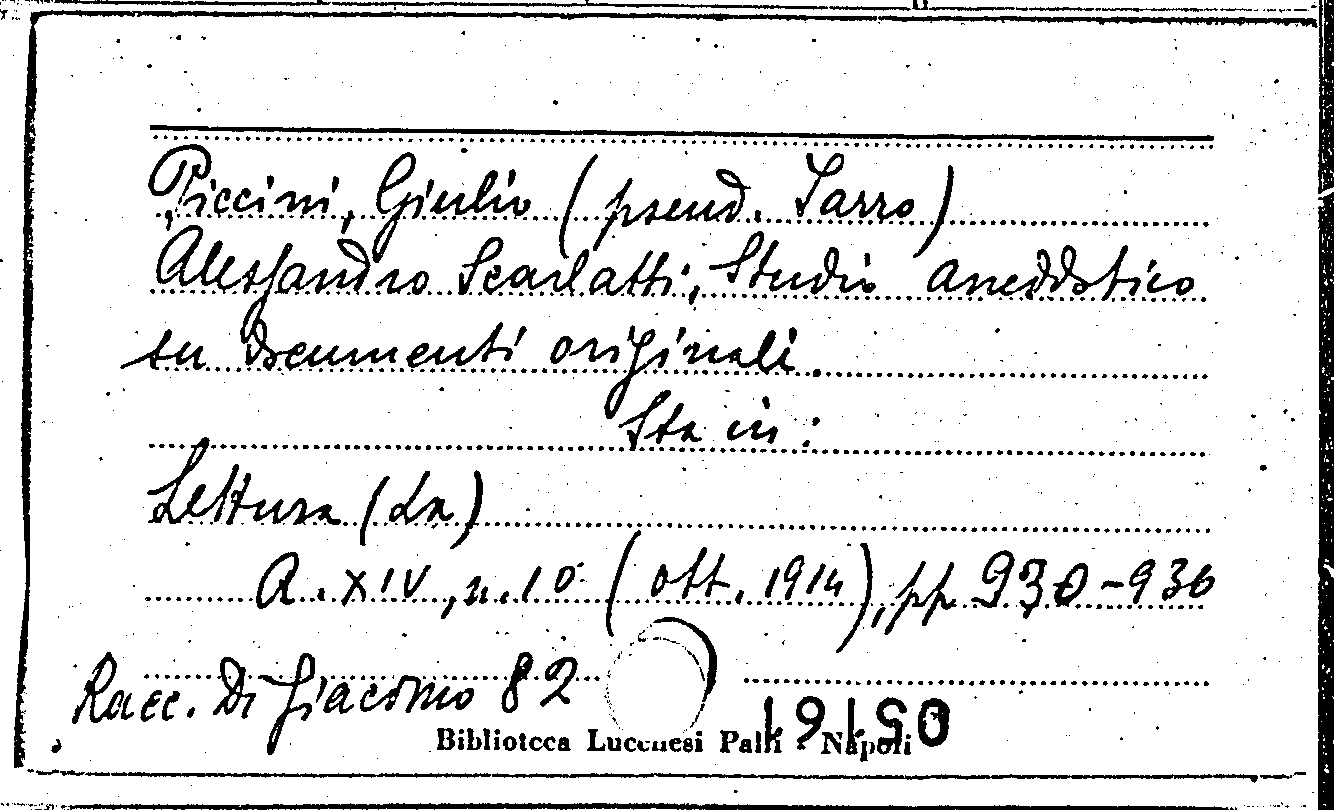 Piccini, Giulio (pseud. Jarro)
Alessandro Scarlatti; Studio aneddotico
su documenti originali.
Sta in:
Lettura (La)
A. XIV, n. 10 (ott. 1914), pp 930-936
Racc. Di Giacomo 82
Biblioteca Lucchesi Palli - Napoli